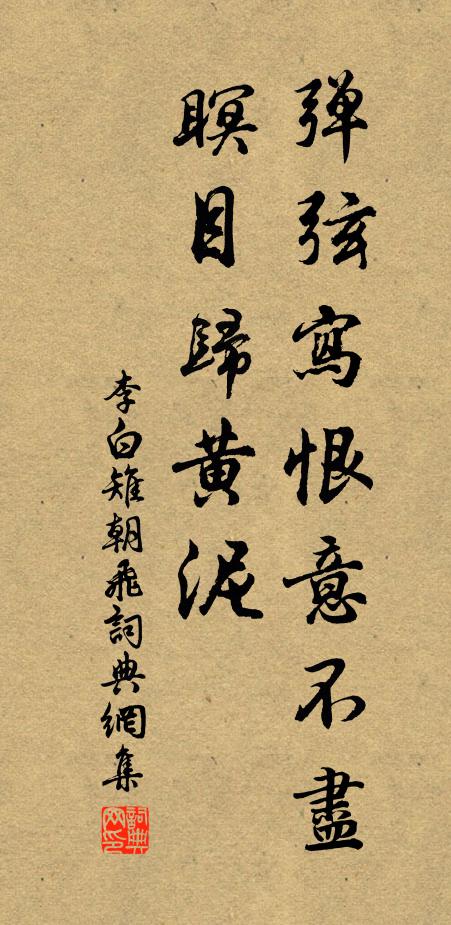 弹弦寫恨意不盡
瞑目歸黄泥
李白雉朝飛詞典網集
詞典网印